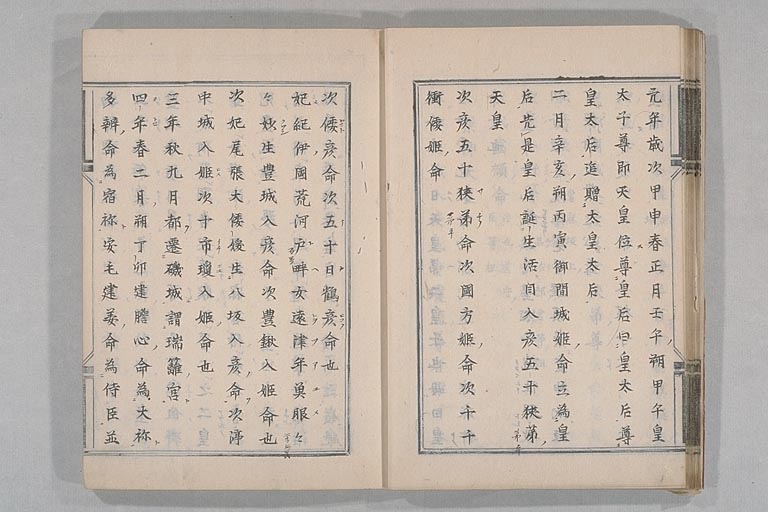 元年歳次甲申春正月壬午朔甲午皇
太子尊即天皇位尊皇后曰皇太后尊
皇太后追贈太皇太后
二月辛亥朔丙寅御間城姫命立為皇
后先是皇后誕生活目入彦五十狭茅
天皇
次彦五十狭茅命次國方姫命次千千
衝倭姫命
次倭彦命次五十日鶴彦命也
妃紀伊國荒河戸畔女遠津年魚眼々
々妙生豊城入彦命次豊鍬入姫命也
次妃尾張大倭媛生八坂入彦命次渟
中城入姫次十市瓊入姫命也
三年秋九月都遷磯城謂瑞籬宮
四年春二月朔丁卯建膽心命為大祢
多辨命為宿祢安毛建美命為侍臣並